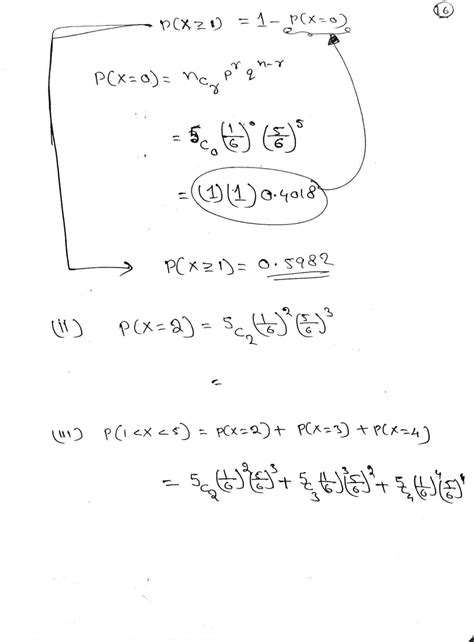 16
P(X≥1) = 1 - P(X=0)
P(X=0) = nCr p^r q^(n-r)
= 5C0 (1/6)^0 (5/6)^5
= (1)(1) 0.4018
P(X≥1) = 0.5982
(ii) P(X=2) = 5C2 (1/6)^2 (5/6)^3
=
(iii) P(1<X<5) = P(X=2) + P(X=3) + P(X=4)
= 5C2 (1/6)^2 (5/6)^3 + 5C3 (1/6)^3 (5/6)^2 + 5C4 (1/6)^4 (5/6)^4